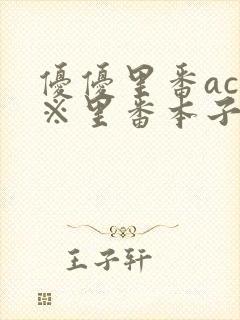 優優里番ac
※里番本子
王子轩